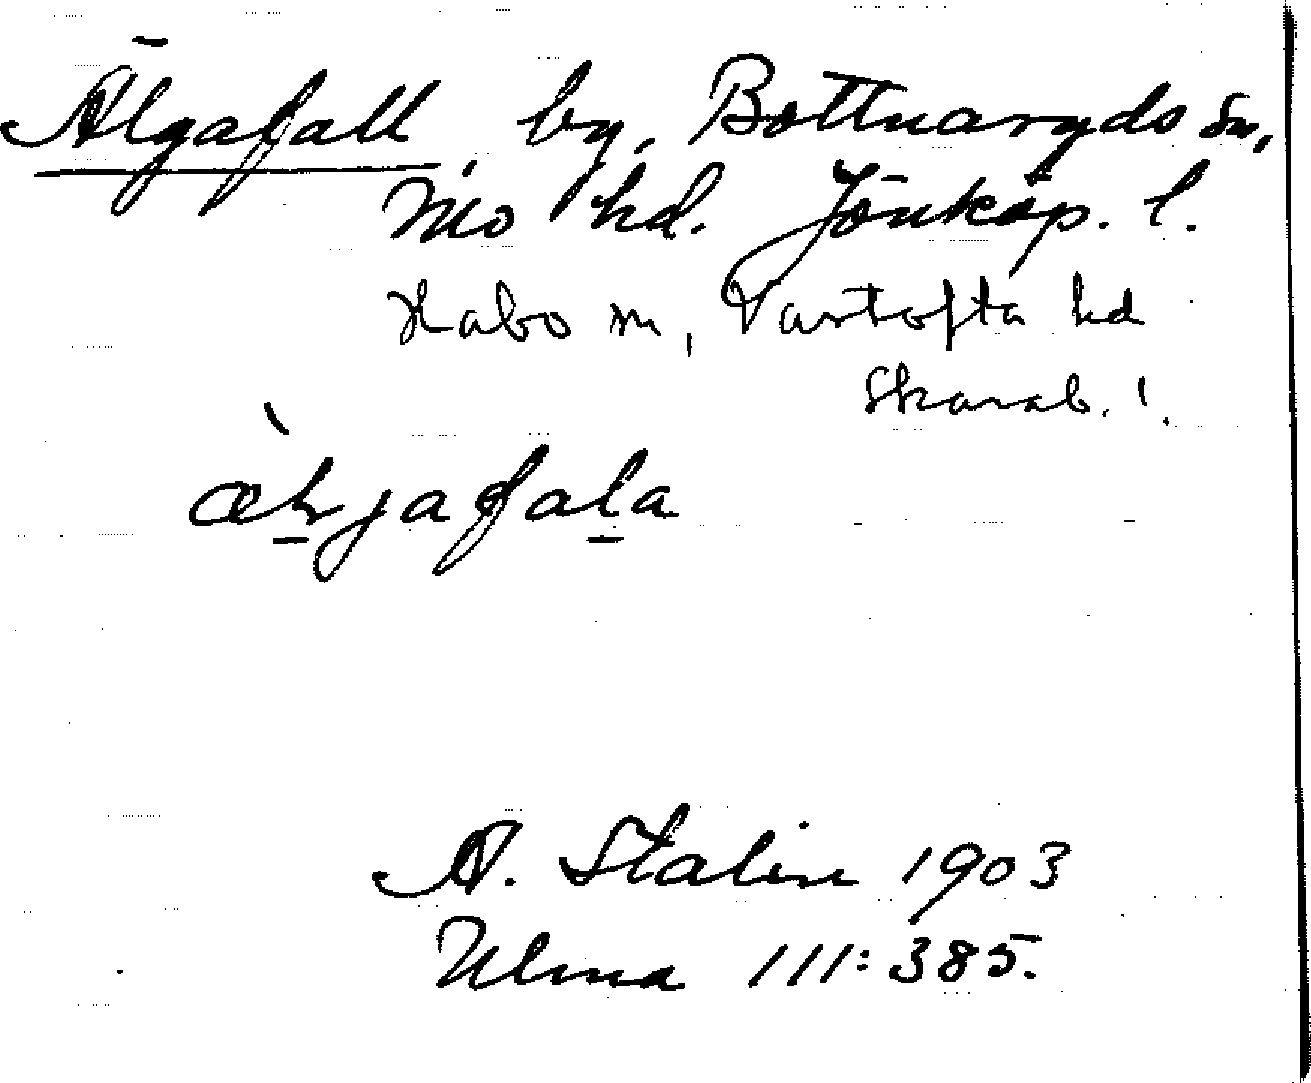 Älgafall, by, Bottnaryds sn,
Mo hd. Jönköp. l.
Habo sn, Vartofta hd
Skarab. l.
æ̀ḻjafaḻa
A. Stalin 1903
Ulma 111:385.